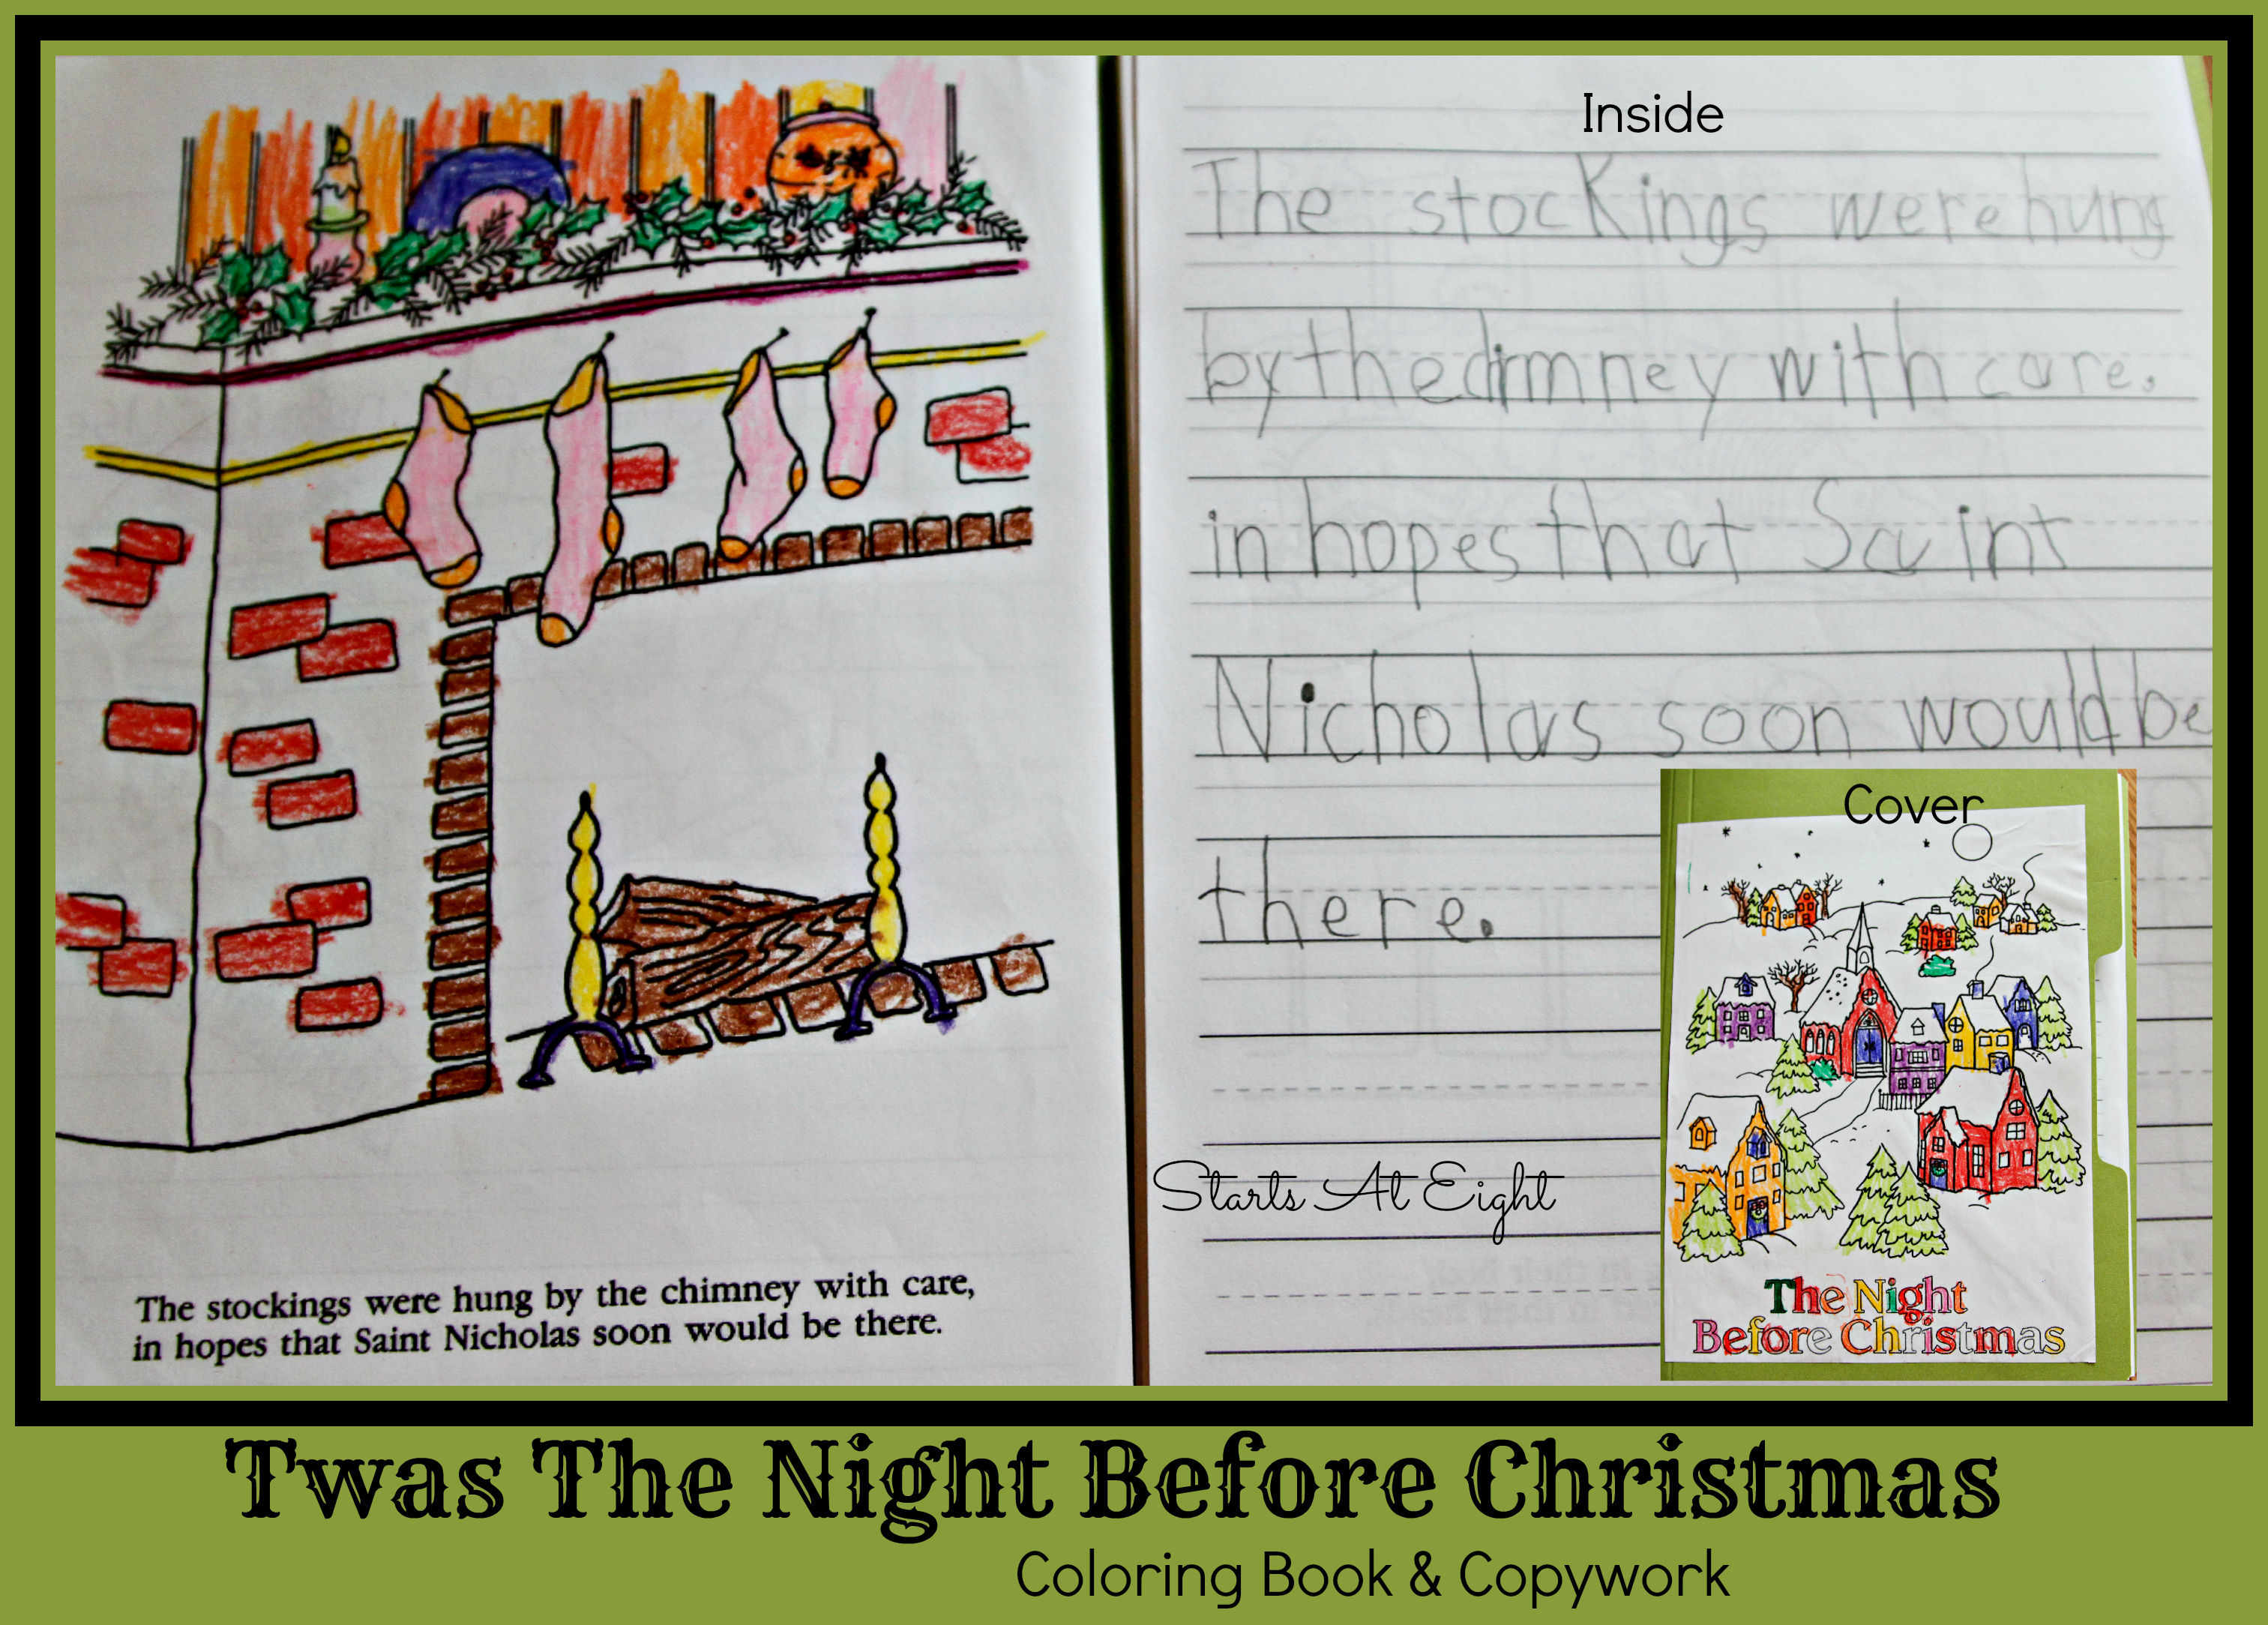 Inside
The stocKings were hung
by the chimney with care.
in hopes that Saint
Nicholas soon would be
there.
The stockings were hung by the chimney with care,
in hopes that Saint Nicholas soon would be there.
Starts At Eight
Cover
The Night
Before Christmas
Twas The Night Before Christmas
Coloring Book & Copywork